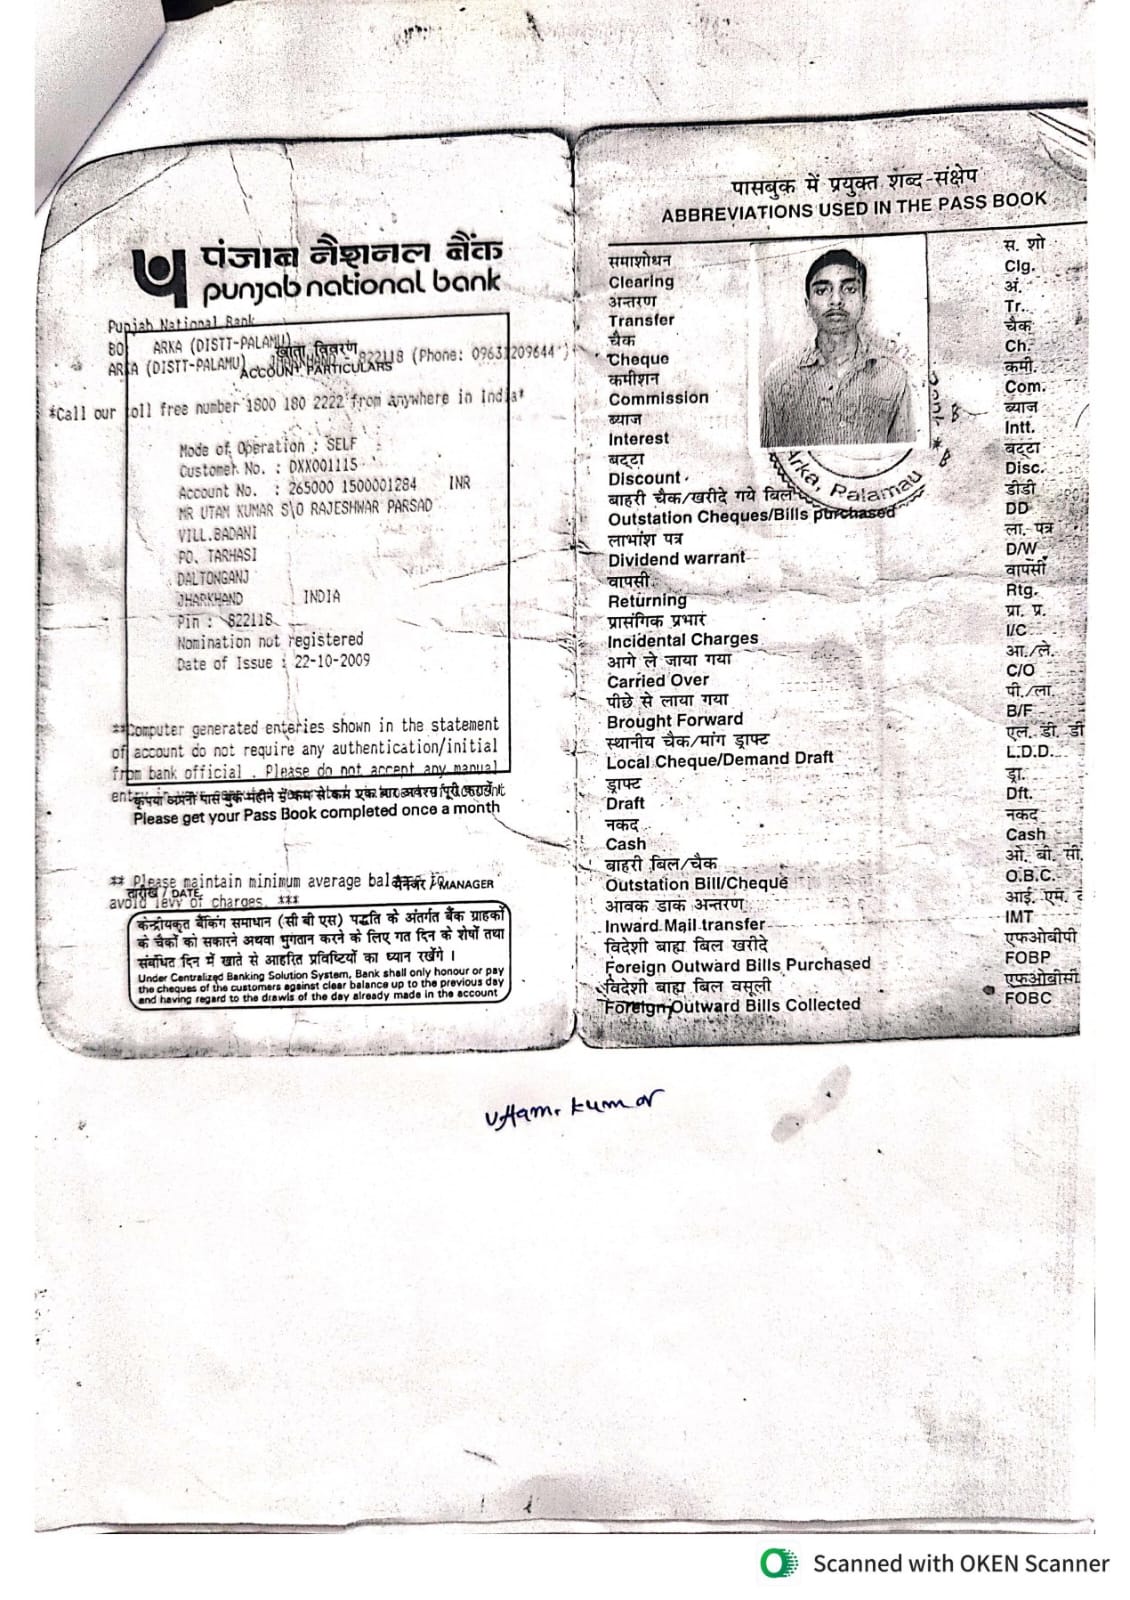 पंजाब नैशनल बैंक
punjab national bank
Punjab National Bank
BO ARKA (DISTT-PALAMU)
खाता विवरण
ARKA (DISTT-PALAMU) JHARKHAND - 822118 (Phone: 09631209644 )
ACCOUNT PARTICULARS
*Call our toll free number 1800 180 2222 from anywhere in India*
Mode of Operation : SELF
Customer No. : DXX001115
Account No. : 265000 1500001284 INR
MR UTAM KUMAR S\O RAJESHWAR PARSAD
VILL.BADANI
PO. TARHASI
DALTONGANJ
JHARKHAND INDIA
Pin : 822118
Nomination not registered
Date of Issue : 22-10-2009
**Computer generated enteries shown in the statement
of account do not require any authentication/initial
from bank official . Please do not accept any manual
कृपया अपनी पास बुक महीने में कम से कम एक बार अवश्य पूरी करायें
Please get your Pass Book completed once a month
** Please maintain minimum average balance to
तारीख / DATE मैनेजर / MANAGER
avoid levy of charges. ***
केन्द्रीयकृत बैंकिंग समाधान (सी बी एस) पद्धति के अंतर्गत बैंक ग्राहकों
के चैकों को सकारने अथवा भुगतान करने के लिए गत दिन के शेषों तथा
संबंधित दिन में खाते से आहरित प्रविष्टियों का ध्यान रखेंगे ।
Under Centralized Banking Solution System, Bank shall only honour or pay
the cheques of the customers against clear balance up to the previous day
and having regard to the drawls of the day already made in the account
पासबुक में प्रयुक्त शब्द-संक्षेप
ABBREVIATIONS USED IN THE PASS BOOK
समाशोधन स. शो
Clearing Clg.
अन्तरण अं.
Transfer Tr..
चैक चैक
Cheque Ch.
कमीशन कमी.
Commission Com.
ब्याज ब्याज
Interest Intt.
बट्टा बट्टा
Discount Disc.
Arka, Palamau
बाहरी चैक/खरीदे गये बिल डीडी
Outstation Cheques/Bills purchased DD
लाभांश पत्र ला. पत्र
Dividend warrant D/W
वापसी वापसी
Returning Rtg.
प्रासंगिक प्रभार प्रा. प्र.
Incidental Charges I/C
आगे ले जाया गया आ./ले.
Carried Over C/O
पीछे से लाया गया पी./ला.
Brought Forward B/F
स्थानीय चैक/मांग ड्राफ्ट एल. डी. डी
Local Cheque/Demand Draft L.D.D.
ड्राफ्ट ड्रा.
Draft Dft.
नकद नकद
Cash Cash
बाहरी बिल/चैक ओ. बी. सी.
Outstation Bill/Cheque O.B.C.
आवक डाक अन्तरण आई. एम.
Inward Mail transfer IMT
विदेशी बाह्य बिल खरीदे एफओबीपी
Foreign Outward Bills Purchased FOBP
विदेशी बाह्य बिल वसूली एफओबीसी
Foreign Outward Bills Collected FOBC
Uttam. kumar
Scanned with OKEN Scanner